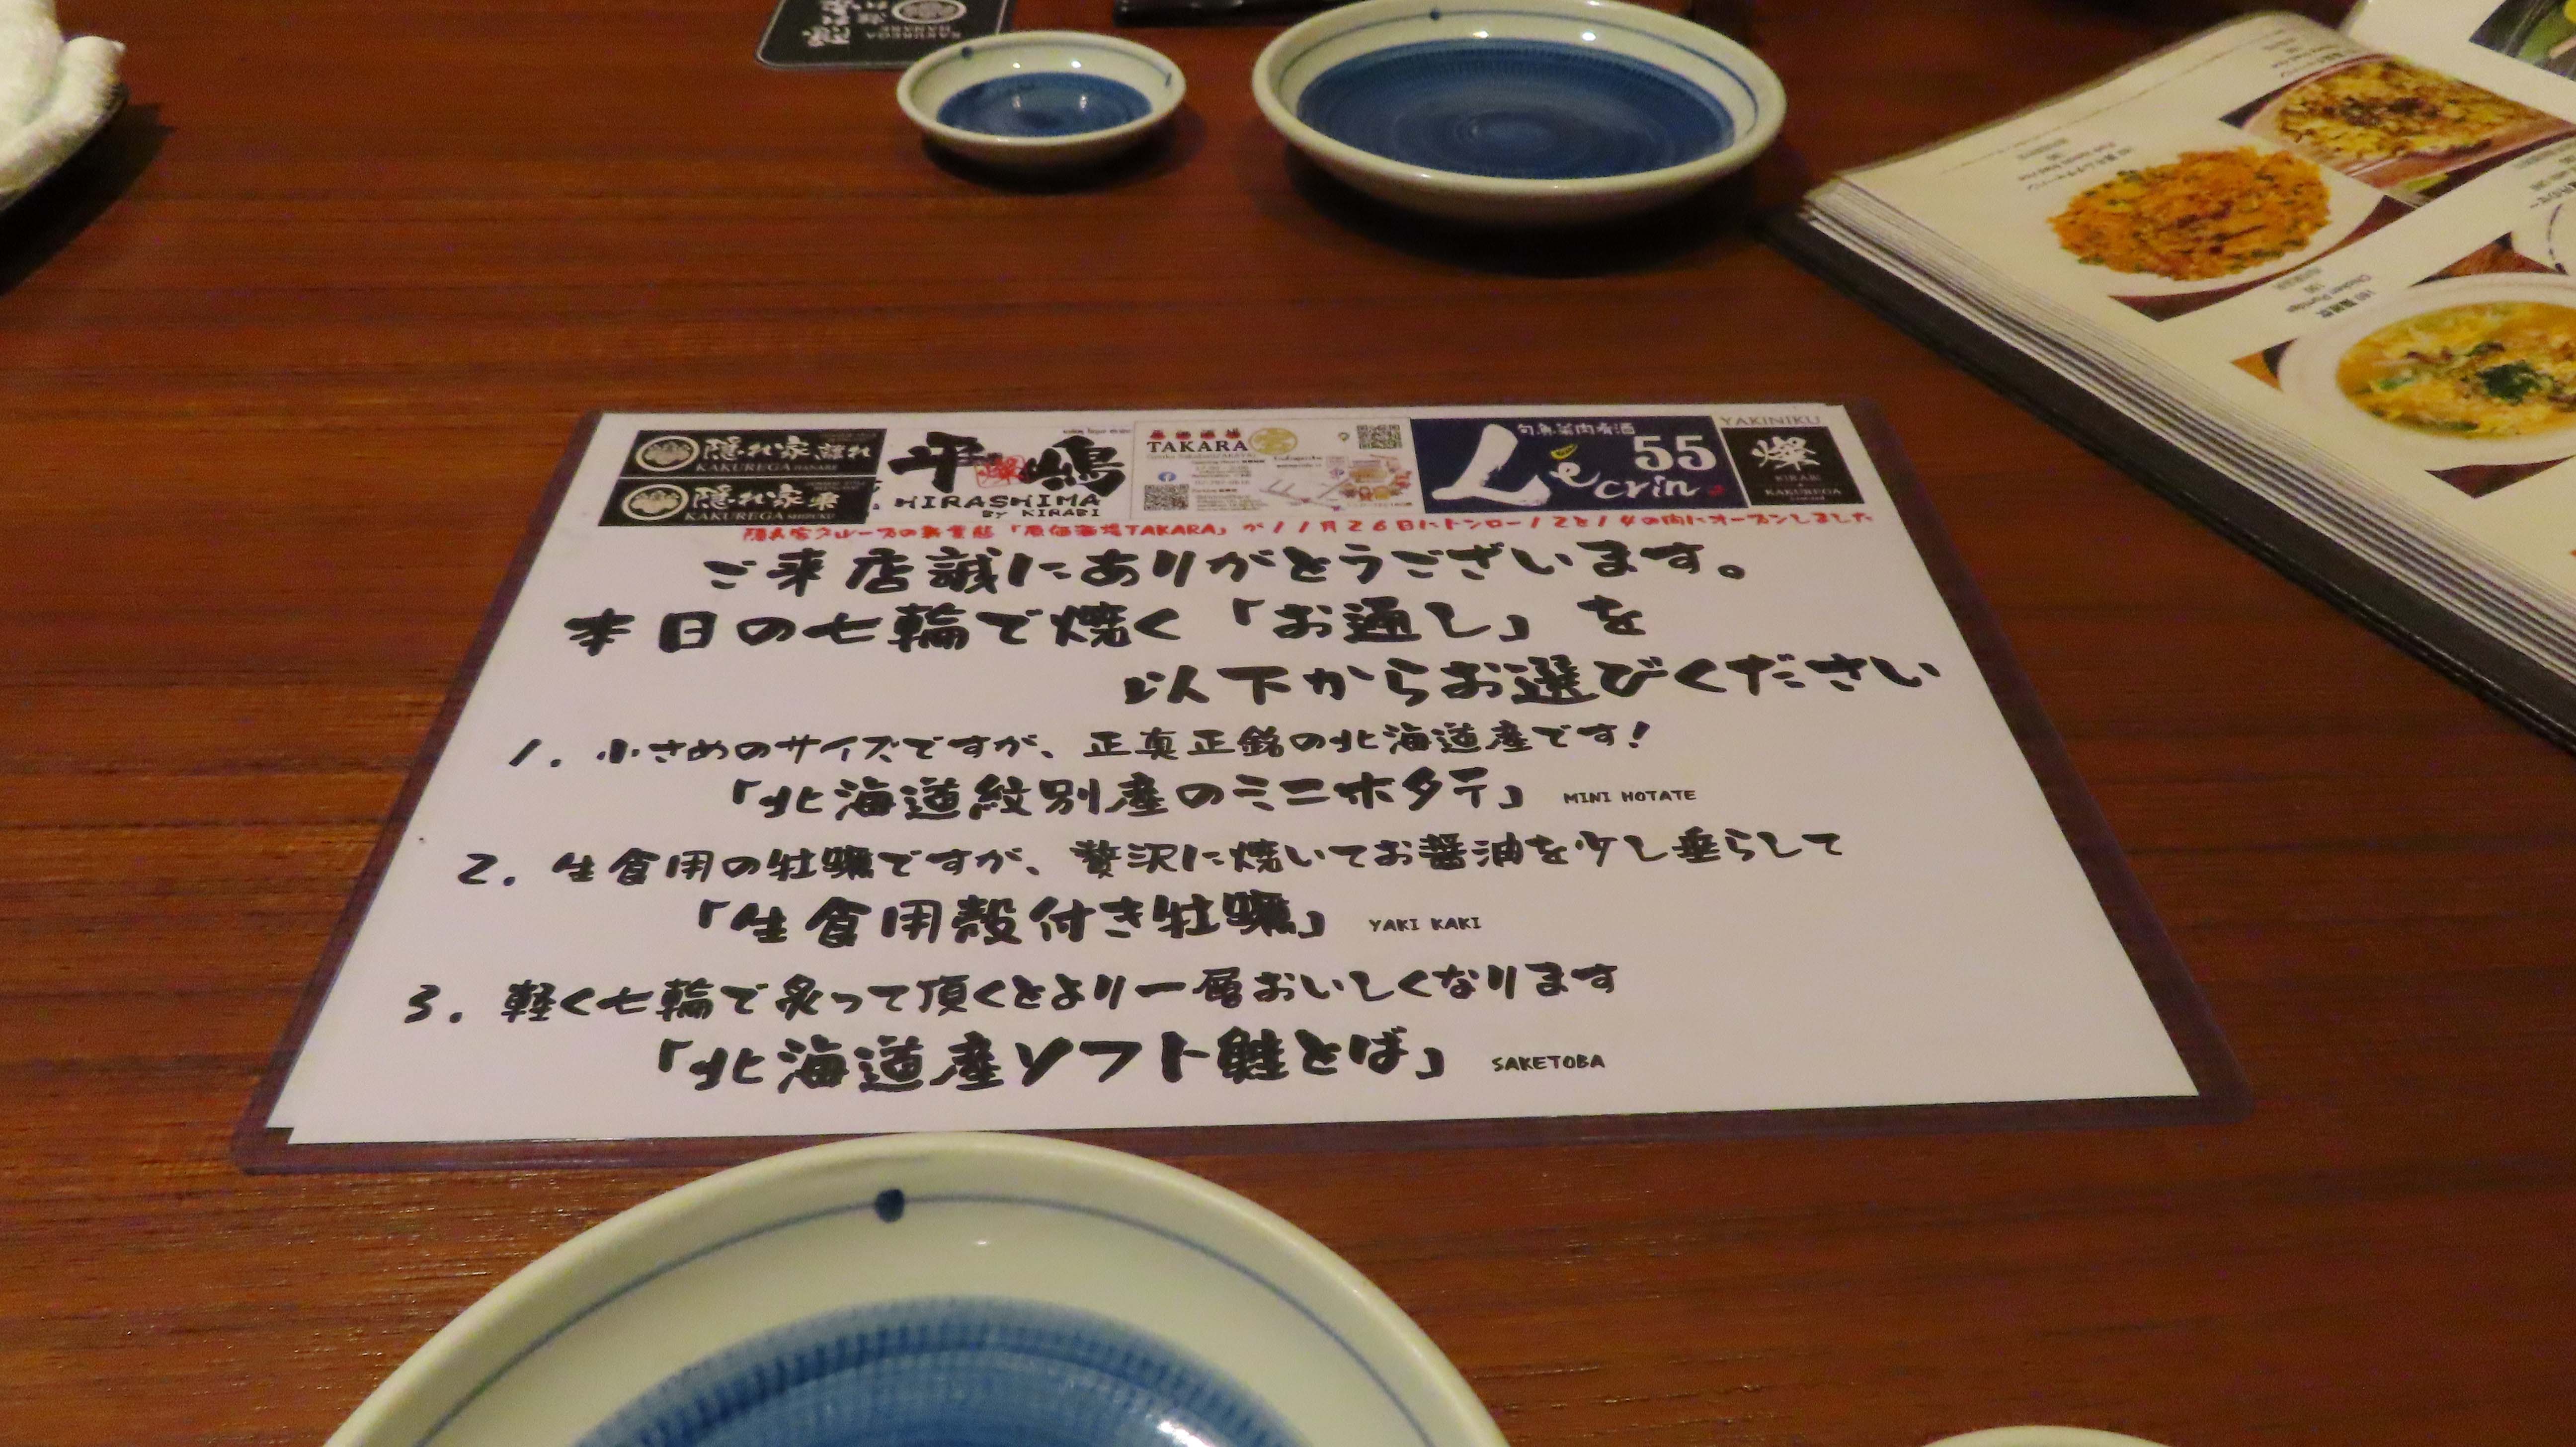 隠れ家離れ
KAKUREGA HANARE
隠れ家
KAKUREGA
平嶋
HIRASHIMA
BY KIRABI
TAKARA
旬魚菜肉肴酒
Le crin 55
YAKINIKU
燦
KIRABI
KAKUREGA
隠れ家グループの新業態「原価酒場TAKARA」が11月26日にトンロー12と14の間にオープンしました
ご来店誠にありがとうございます。
本日の七輪で焼く「お通し」を
以下からお選びください
1. 小さめのサイズですが、正真正銘の北海道産です!
「北海道紋別産のミニホタテ」 MINI HOTATE
2. 生食用の牡蠣ですが、贅沢に焼いてお醤油を少し垂らして
「生食用殻付き牡蠣」 YAKI KAKI
3. 軽く七輪で炙って頂くとより一層おいしくなります
「北海道産ソフト鮭とば」 SAKETOBA